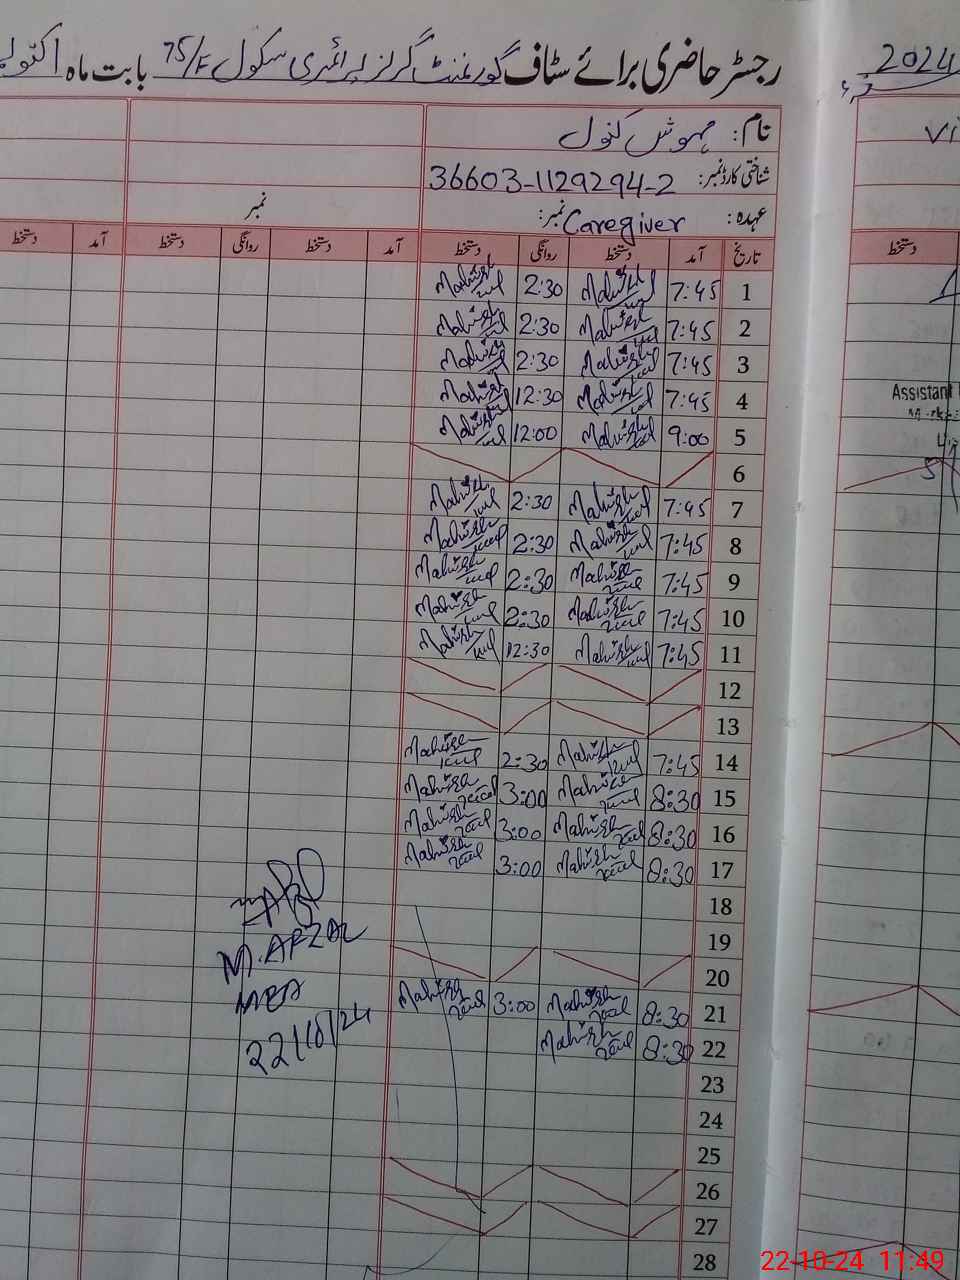 رجسٹر حاضری برائے سٹاف گورنمنٹ گرلز پرائمری سکول 75/F بابت ماہ اکتوبر
2024
نام: مہوش کنول
شناختی کارڈ نمبر: 36603-1129294-2
عہدہ: Caregiver نمبر:
نمبر
تاریخ آمد دستخط روانگی دستخط آمد دستخط روانگی دستخط آمد دستخط
دستخط
1 7:45 Mahwish 2:30 Mahwish
2 7:45 Mahwish 2:30 Mahwish
3 7:45 Mahwish 2:30 Mahwish
4 7:45 Mahwish 12:30 Mahwish
5 9:00 Mahwish 12:00 Mahwish
6
7 7:45 Mahwish 2:30 Mahwish
8 7:45 Mahwish 2:30 Mahwish
9 7:45 Mahwish 2:30 Mahwish
10 7:45 Mahwish 2:30 Mahwish
11 7:45 Mahwish 12:30 Mahwish
12
13
14 7:45 Mahwish 2:30 Mahwish
15 8:30 Mahwish 3:00 Mahwish
16 8:30 Mahwish 3:00 Mahwish
17 8:30 Mahwish 3:00 Mahwish
18
19
20
21 8:30 Mahwish 3:00 Mahwish
22 8:30 Mahwish
23
24
25
26
27
28
M. AFZAL
MEA
22/10/24
Assistant
22-10-24 11:49